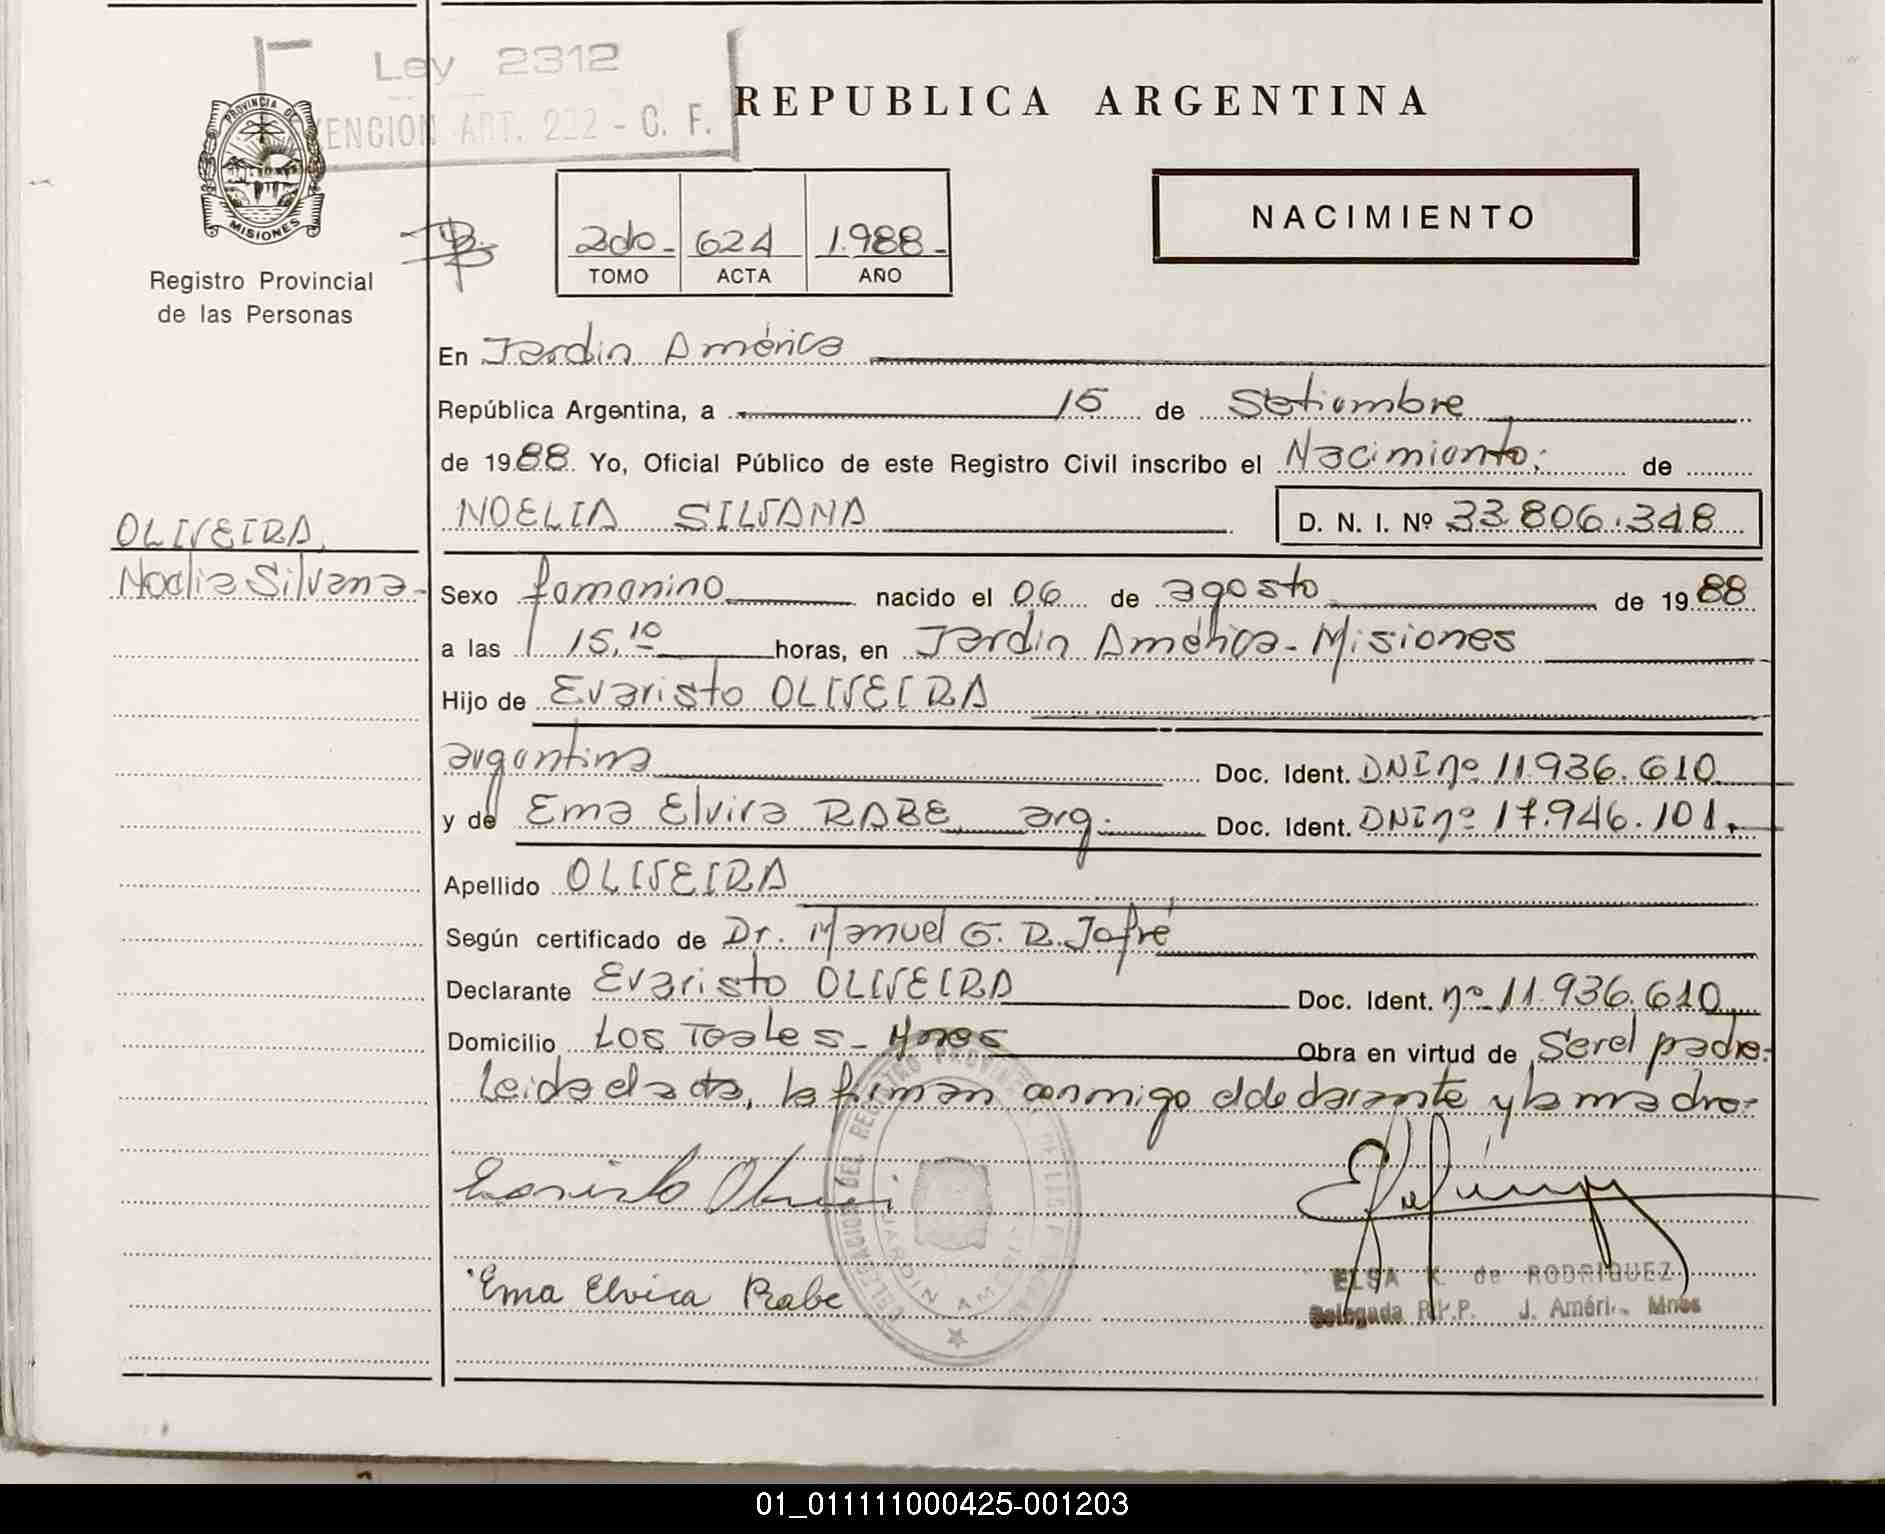 Ley 2312
ENCION ART. 222 - C. F.
REPUBLICA ARGENTINA
PROVINCIA DE
MISIONES
Registro Provincial
de las Personas
2do- 624 1.988-
TOMO ACTA AÑO
NACIMIENTO
En Jardin América
República Argentina, a 15 de Setiembre
de 1988 Yo, Oficial Público de este Registro Civil inscribo el Nacimiento: de
NOELIA SILVANA D. N. I. Nº 33.806.348
OLIVEIRA,
Noelia Silvana-
Sexo femenino nacido el 06 de agosto de 1988
a las 15,10 horas, en Jardin América-Misiones
Hijo de Evaristo OLIVEIRA
argentina Doc. Ident. DNI nº 11.936.610
y de Ema Elvira RABE arg. Doc. Ident. DNI nº 17.946.101.
Apellido OLIVEIRA
Según certificado de Dr. Manuel G. R. Jofré
Declarante Evaristo OLIVEIRA Doc. Ident. nº 11.936.610
Domicilio Los Teales - Mnes Obra en virtud de Ser el padre-
Leida el acta, la firman conmigo el declarante y la madre-
Ema Elvira Rabe
DELEGACION DEL REGISTRO PROVINCIAL DE LAS PERSONAS
JARDIN AMERICA
ELSA K. de RODRIGUEZ
Delegada R.P.P. J. Améri. Mnes
01_011111000425-001203